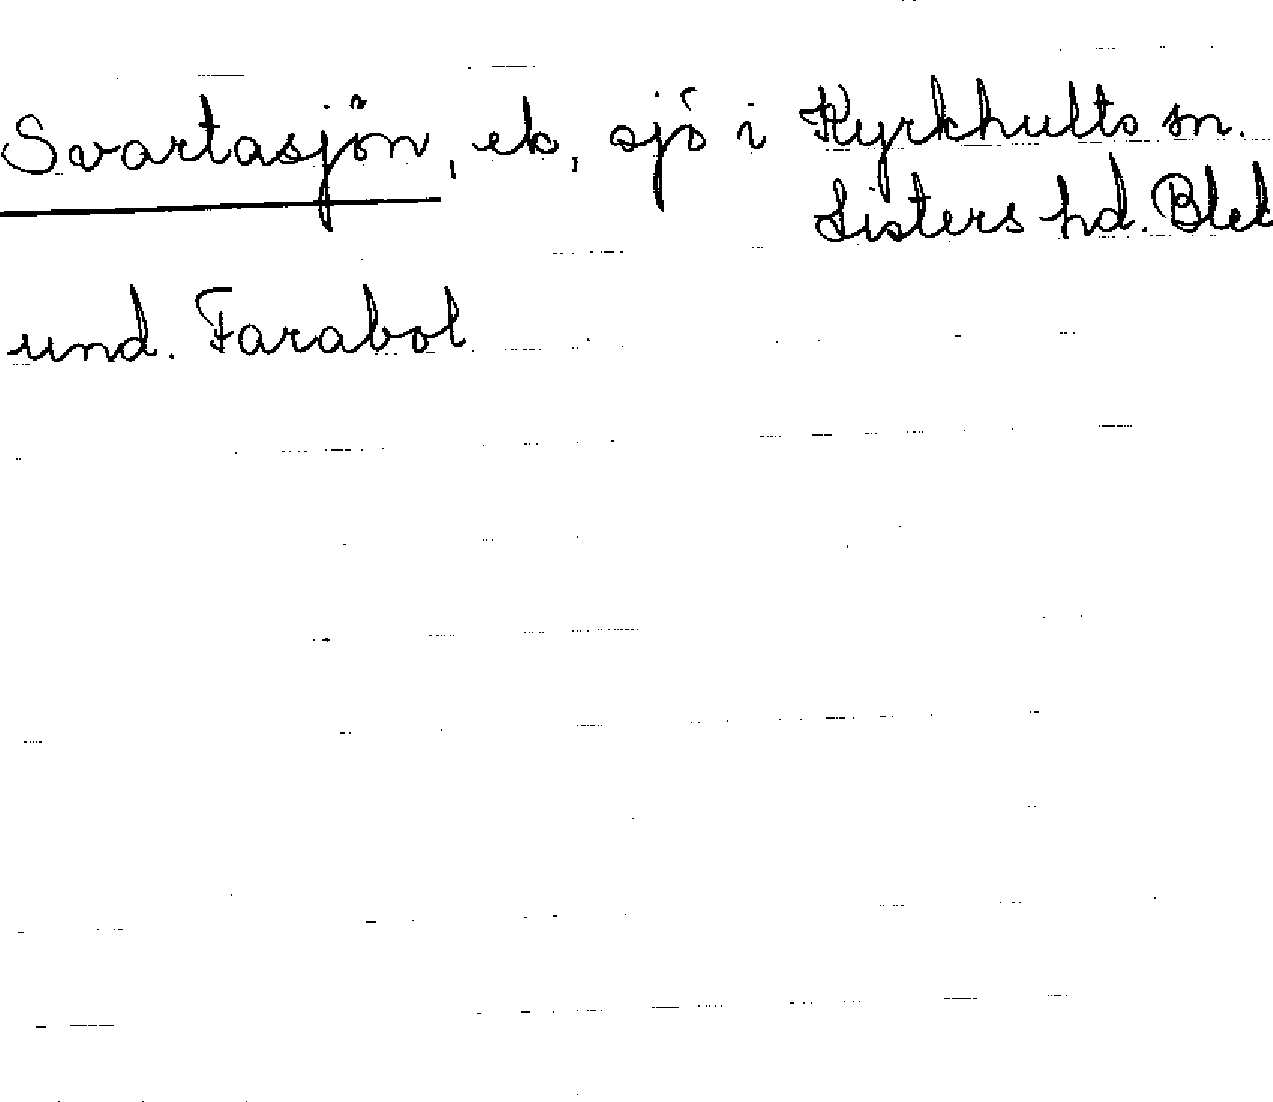 Svartasjön, ek, sjö i Kyrkhults sn.
Listers hd. Blek
und. Farabol